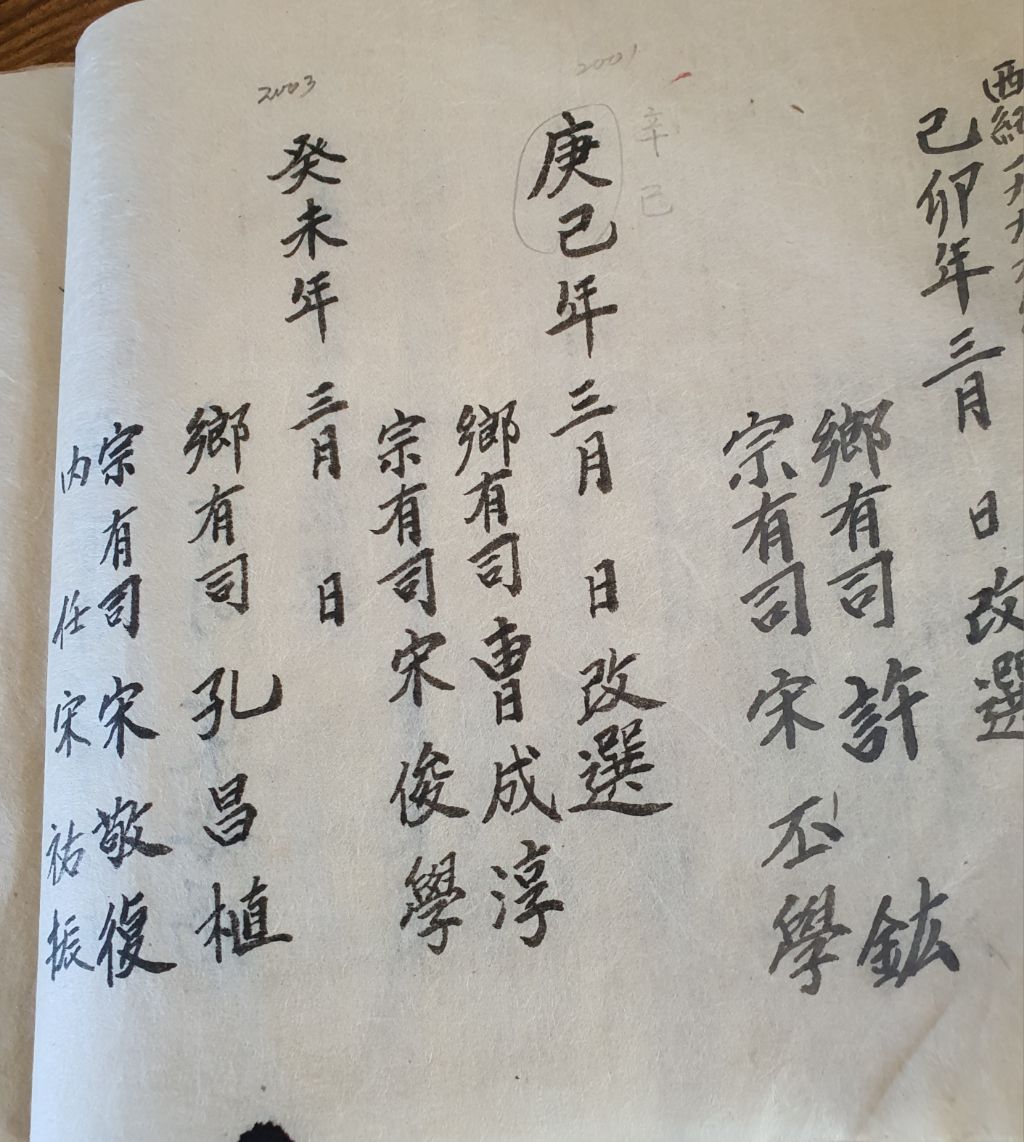 西紀一九九九年
己卯年 三月 日 改選
鄕有司 許 鈜
宗有司 宋 丕學
2001
辛巳
庚巳年 三月 日 改選
鄕有司 曺成淳
宗有司 宋俊學
2003
癸未年 三月 日
鄕有司 孔昌植
宗有司 宋敬復
內任 宋祐振